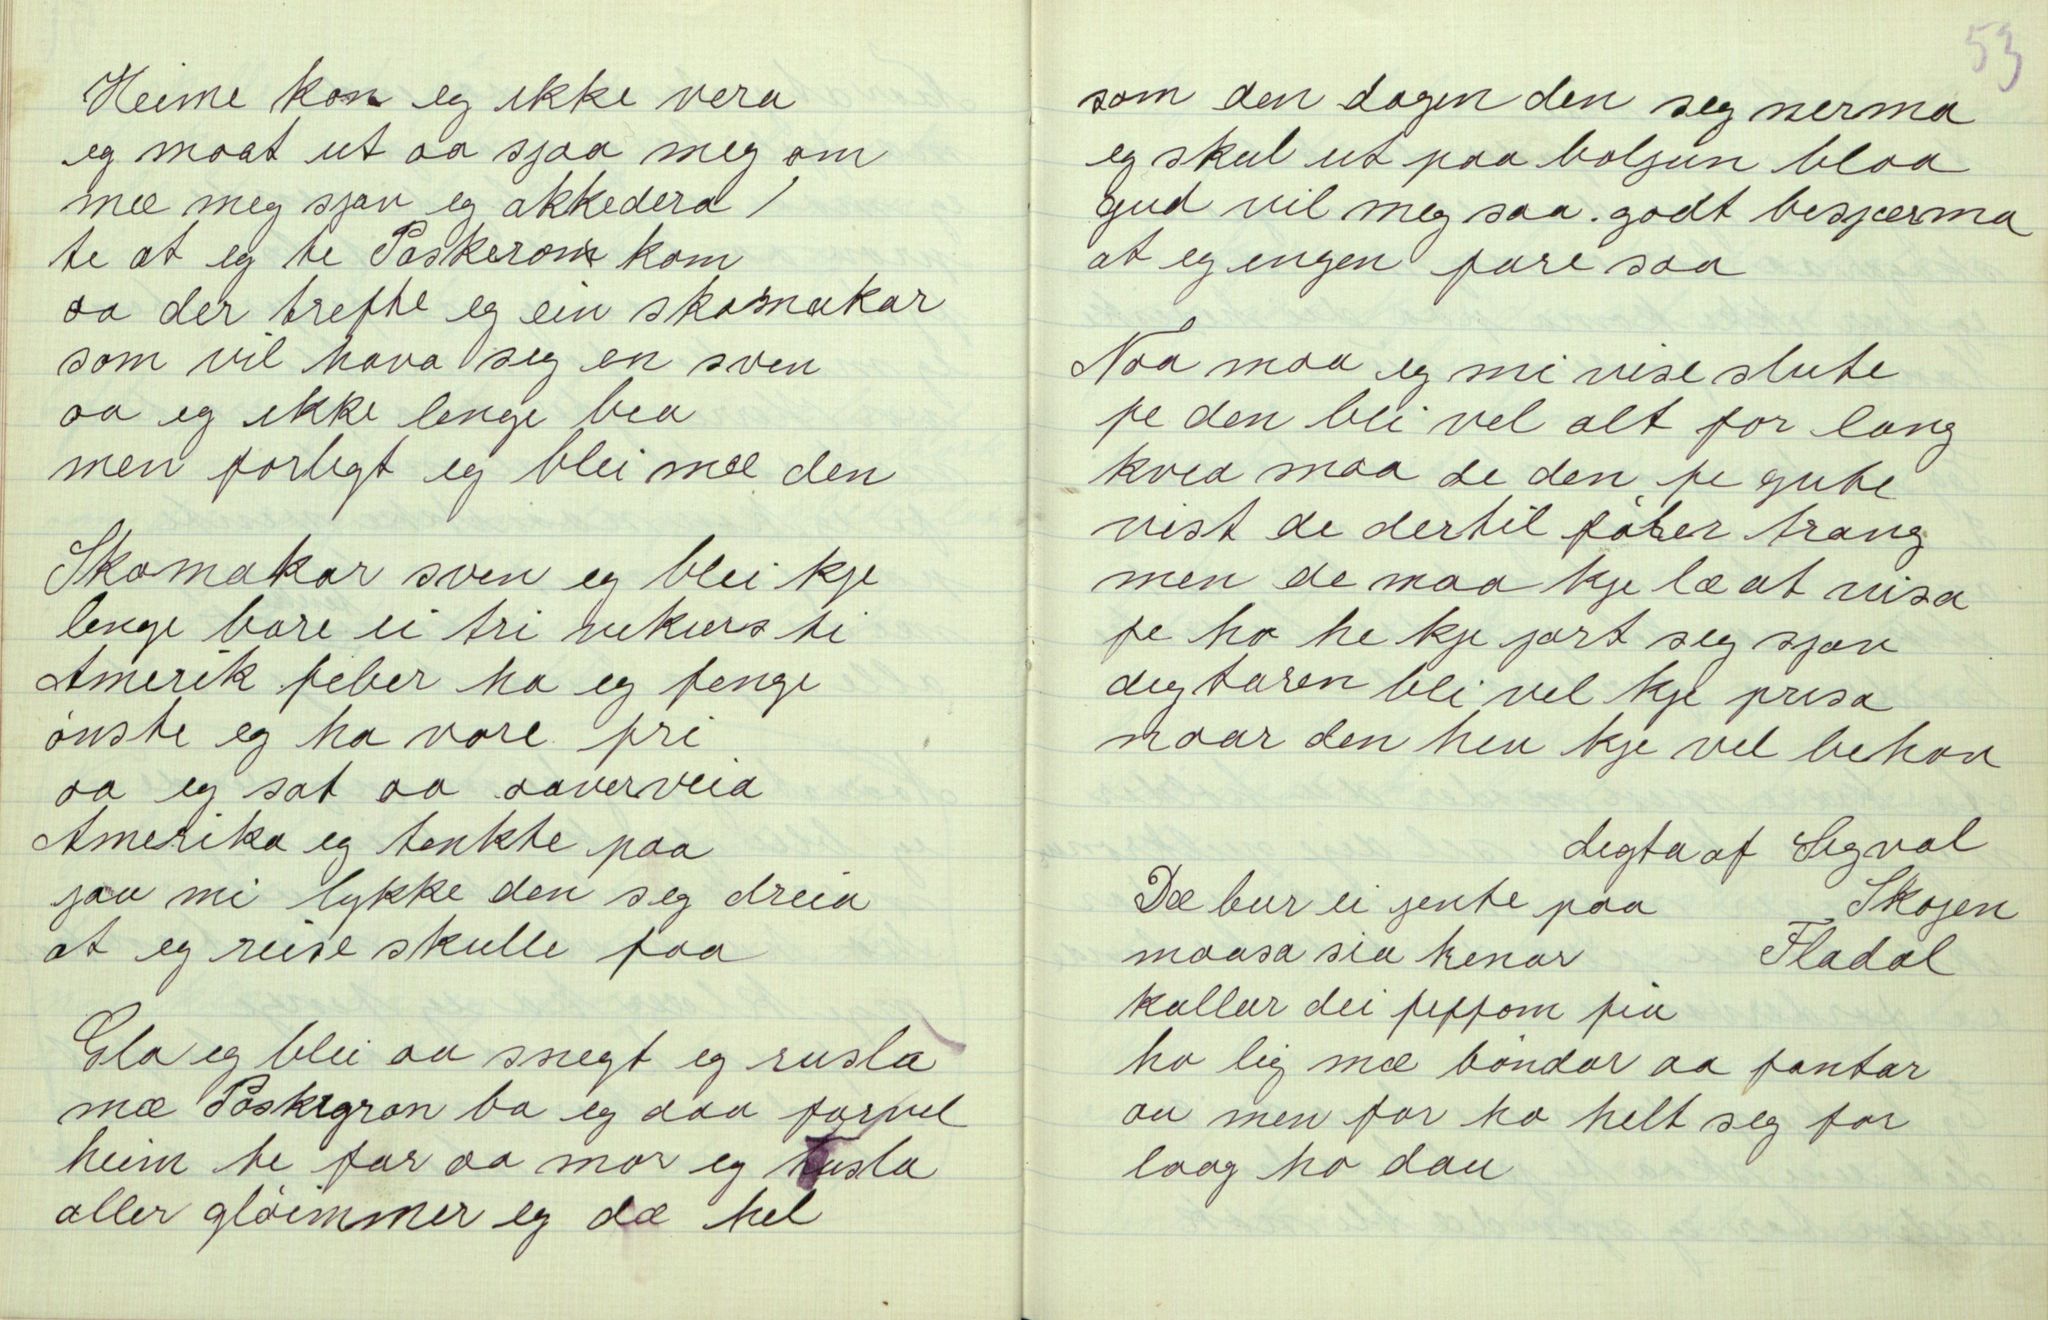 Heime kan eg ikke vera
eg maat ut aa sjaa meg om
mæ meg sjav eg akkedera
te at eg te Paskeron kom
aa der trefte eg ein skomakar
som vil hava seg en sven
aa eg ikke lenge bea
men forligt eg blei mæ den

Skomakar sven eg blei kje
lenge bare ei tri vekurs ti
Amerik feber ha eg fenge
ønste eg ha vore fri
aa eg sat aa aaverveia
Amerika eg tenkte paa
saa mi lykke den seg dreia
at eg reise skulle faa

Gla eg blei aa snegt eg rusla
mæ Paskegron ba eg daa farvel
heim te far aa mor eg tusla
aller gløimmer eg dæ hel

53
som den dagen den seg nerma
eg skul ut paa boljun blaa
gud vil meg saa godt besjærma
at eg engen fare saa

Naa maa eg mi vise slute
fe den bli vel alt for lang
kvea maa de den fe gute
vist de dertil føler trang
men de maa kje læ at visa
fe ho he kje jort seg sjav
degtaren bli vel kje prisa
naar den hev kje vel behav

degta af Sigval
Skojen
Fladal

Dæ bur ei jente paa
maasa sia henar
kallar dei feffom fia
ho lig mæ bøndar aa fantar
au men for ho helt seg for
laag ho dau